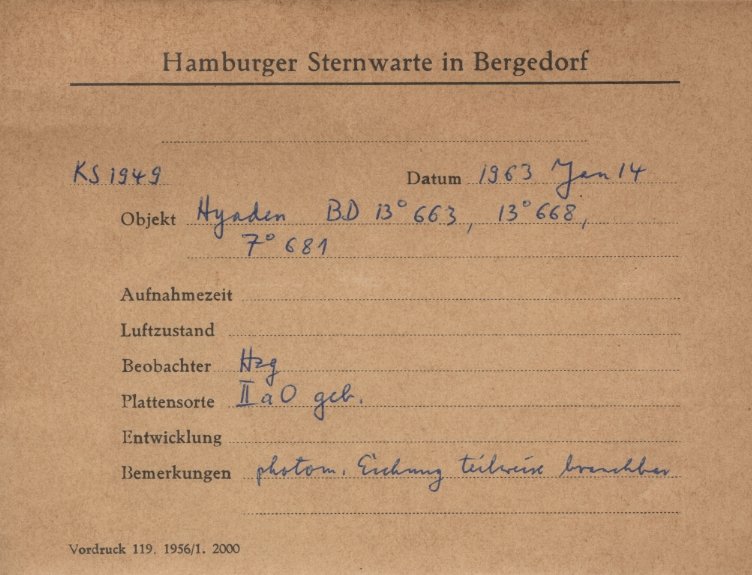 Hamburger Sternwarte in Bergedorf
KS 1949 Datum 1963 Jan 14
Objekt Hyaden BD 13° 663, 13° 668,
7° 681
Aufnahmezeit
Luftzustand
Beobachter Hzg
Plattensorte II a O geb.
Entwicklung
Bemerkungen photom. Eichung teilweise brauchbar
Vordruck 119. 1956/1. 2000